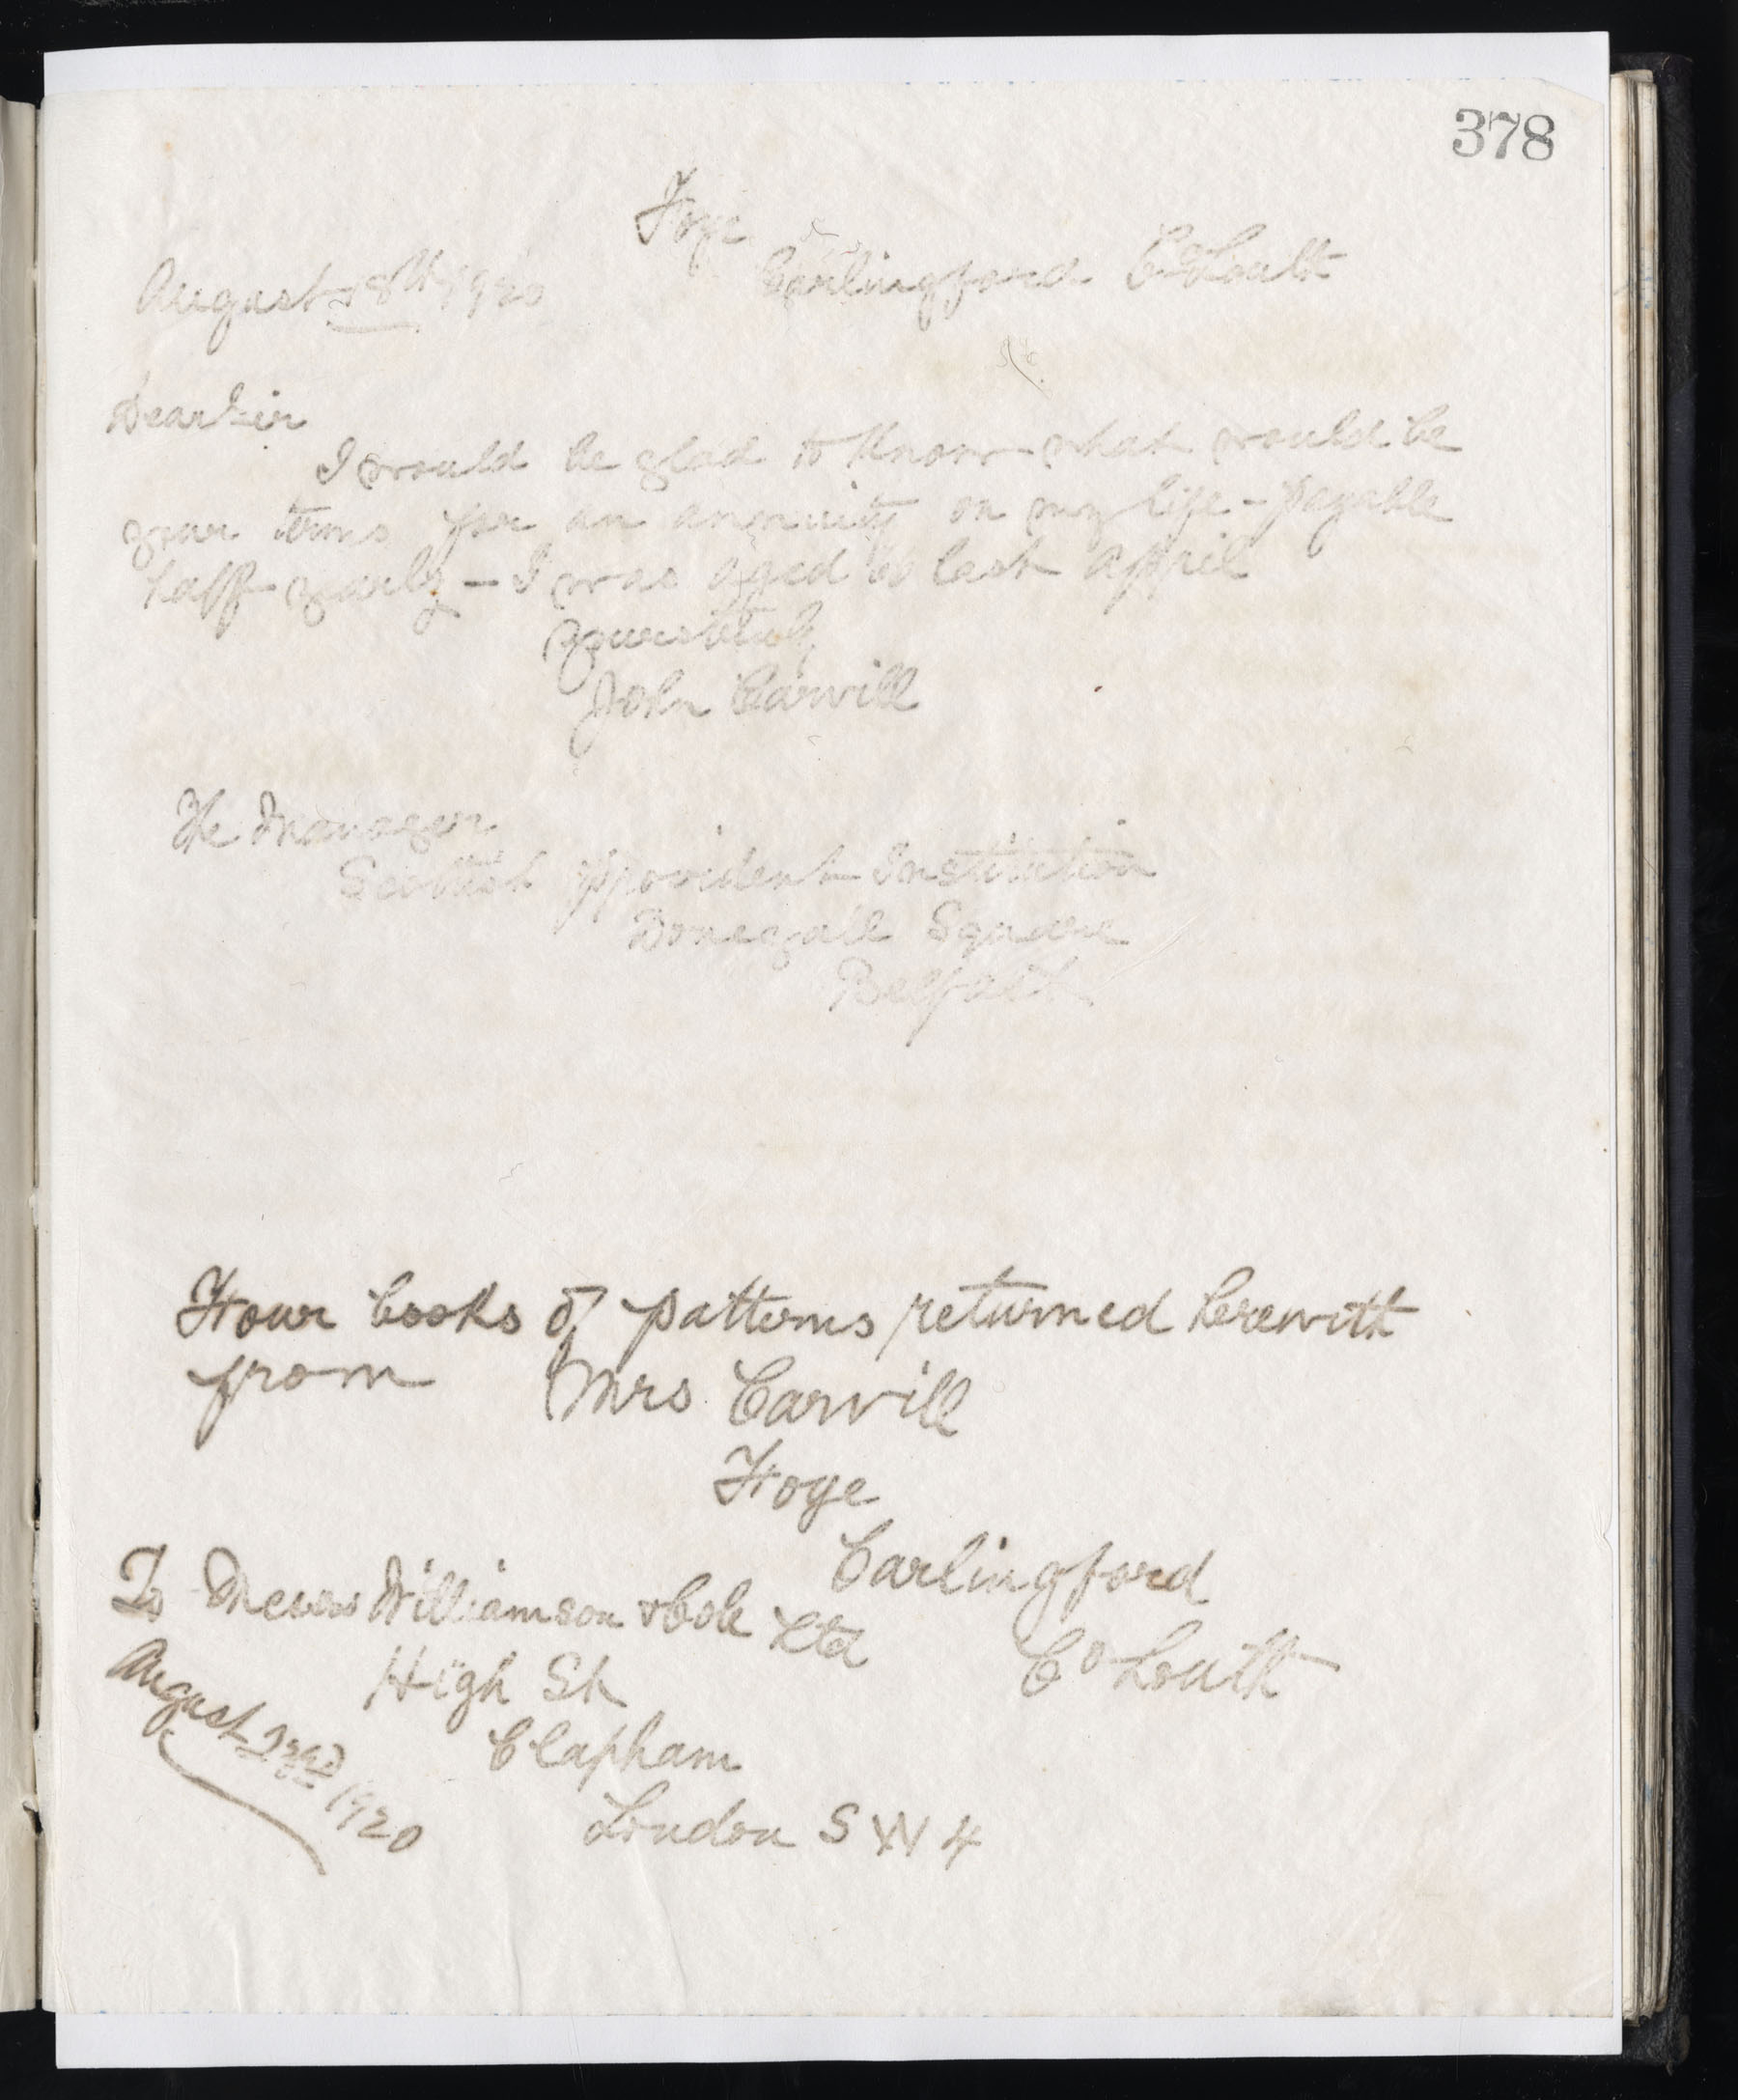 378
Foye
Carlingford Co Louth
August 18th 1920
Dear Sir
I would be glad to know what would be
your terms for an annuity on my life - payable
half yearly - I was aged last April
Yours truly
John Carvill
The Manager
Scottish Provident Institution
Donegall Square
Belfast
Four books of patterns returned herewith
from Mrs Carvill
Foye
Carlingford
Co Louth
To Messrs Williamson & Cole Ltd
High St
Clapham
London S W 4
August 23rd 1920